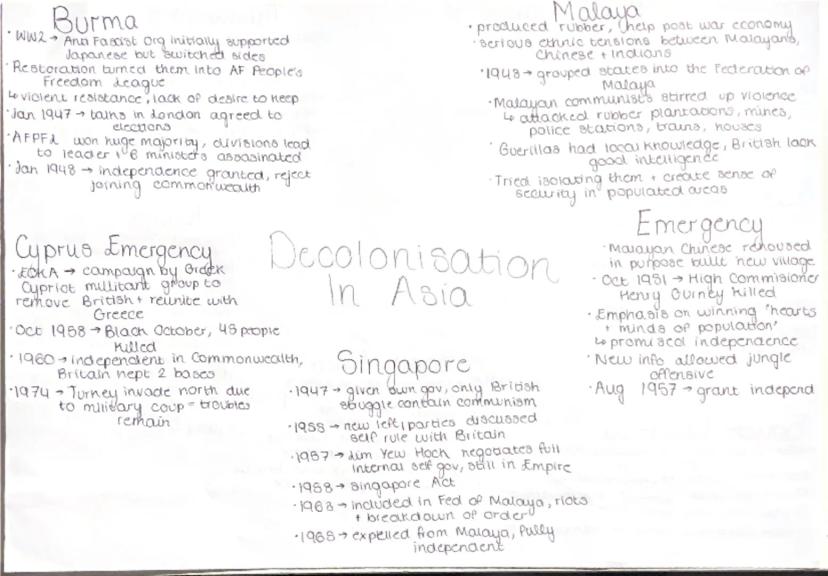 Burma
· WW2 → Anti Fascist Org initially supported
Japanese but switched sides
· Restoration turned them into AF People's
Freedom League
↳ violent resistance, lack of desire to keep
· Jan 1947 → talks in London agreed to
elections
· AFPFL won huge majority, divisions lead
to leader + 6 ministers assasinated
· Jan 1948 → independence granted, reject
joining commonwealth
Malaya
· produced rubber, help post war economy
· serious ethnic tensions between Malayans,
Chinese + Indians
· 1948 → grouped states into the Federation of
Malaya
· Malayan communists stirred up violence
↳ attacked rubber plantations, mines,
police stations, trains, houses
· Guerillas had local knowledge, British lack
good intelligence
· Tried isolating them + create sense of
security in populated areas
Cyprus Emergency
· EOKA → campaign by Greek
Cypriot militant group to
remove British + reunite with
Greece
· Oct 1958 → Black October, 45 people
killed
· 1960 → independent in Commonwealth,
Britain kept 2 bases
· 1974 → Turkey invade north due
to military coup = troubles
remain
Decolonisation
In Asia
Emergency
· Malayan Chinese rehoused
in purpose built new village
· Oct 1951 → High Commisioner
Henry Gurney killed
· Emphasis on winning 'hearts
+ minds of population'
↳ promised independence
· New info allowed jungle
offensive
· Aug 1957 → grant independ
Singapore
· 1947 → given own gov, only British
struggle contain communism
· 1955 → new left parties discussed
self rule with Britain
· 1957 → Lim Yew Hock negotiates full
internal self gov, still in Empire
· 1958 → Singapore Act
· 1963 → included in Fed of Malaya, riots
+ breakdown of order
· 1965 → expelled from Malaya, fully
independent